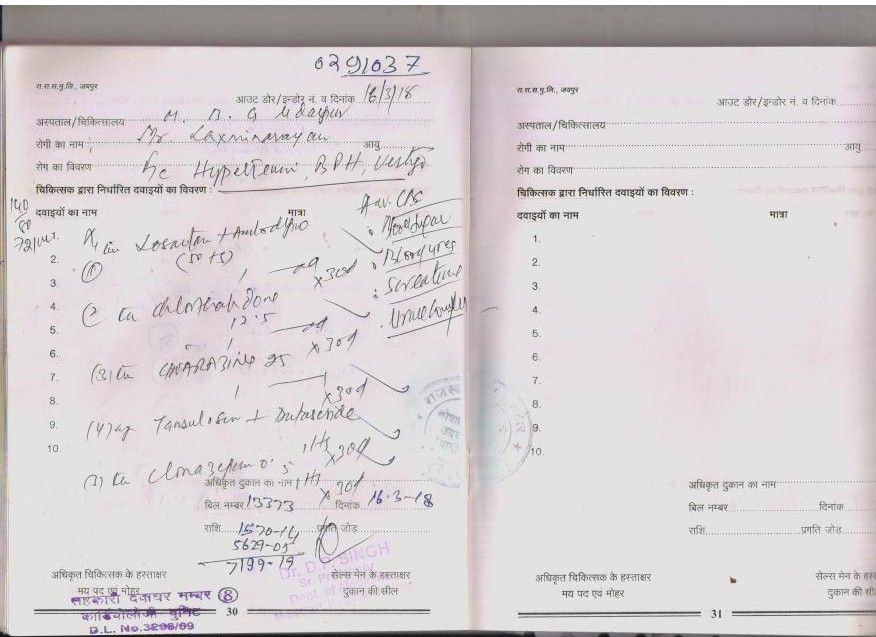 0291037
रा.रा.स.पु.लि., जयपुर
आउट डोर/इन्डोर नं. व दिनांक 16/3/18
अस्पताल/चिकित्सालय M. B. G Udaipur
रोगी का नाम : Mr. Laxminarayan आयु
रोग का विवरण Hypertension, BPH, Vertigo
चिकित्सक द्वारा निर्धारित दवाइयों का विवरण :
140
80
72/mt
दवाइयों का नाम मात्रा
Adv. CBC
Blood Sugar
Blood urea
S. creatinine
Urine Complete
1. Losartan + Amlodipine
2. (50+5)
(1)
3. 1 od x 30d
4. (2) chlorthalidone
5. 12.5
6. 1 od x 30d
7. (3) CINNARAZINE 25
8. 1 x 30d
9. (4) Tamsulosin + Dutasteride
10. 1 HS x 30d
Clonazepam 0.5
1 HS
x 30d
अधिकृत दुकान का नाम
बिल नम्बर 13373 दिनांक 16.3-18
राशि 1570-14 प्रगति जोड़
5629-05
7199-19
Dr. D.P. SINGH
अधिकृत चिकित्सक के हस्ताक्षर सेल्स मेन के हस्ताक्षर
मय पद एवं मोहर दुकान की सील
सहकारी दवाघर नम्बर 8
कार्डियोलोजी युनिट
D.L. No.3298/09
30
रा.रा.स.पु.लि., जयपुर
आउट डोर/इन्डोर नं. व दिनांक
अस्पताल/चिकित्सालय
रोगी का नाम आयु
रोग का विवरण
चिकित्सक द्वारा निर्धारित दवाइयों का विवरण :
दवाइयों का नाम मात्रा
1.
2.
3.
4.
5.
6.
7.
8.
9.
10.
अधिकृत दुकान का नाम
बिल नम्बर दिनांक
राशि प्रगति जोड़
अधिकृत चिकित्सक के हस्ताक्षर सेल्स मेन के
मय पद एवं मोहर दुकान की
31